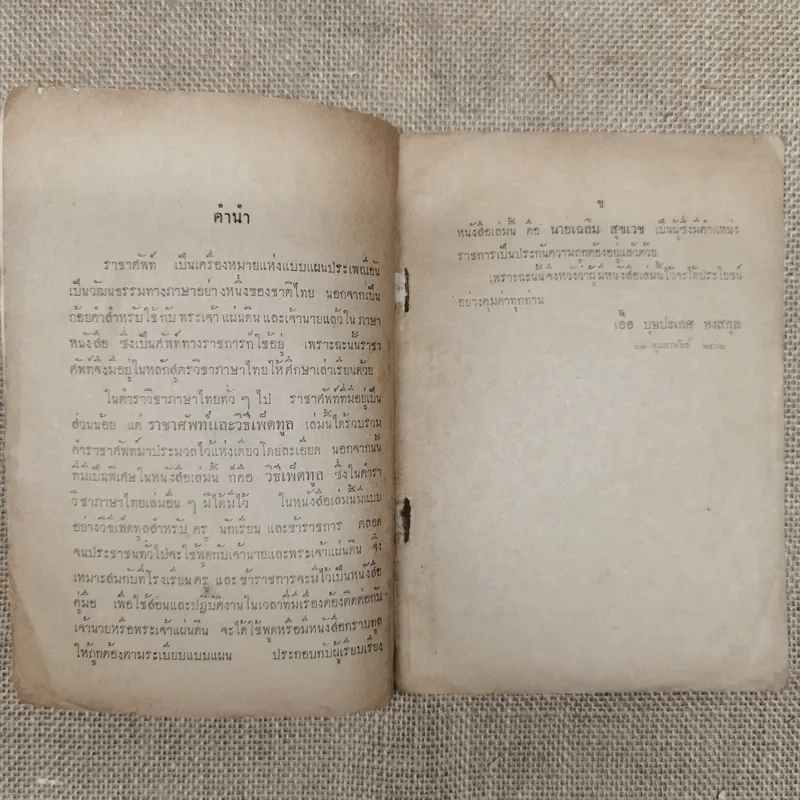 คำนำ
ราชาศัพท์ เป็นเครื่องหมายแห่งแบบแผนประเพณีอัน
เป็นวัฒนธรรมทางภาษาอย่างหนึ่งของชาติไทย นอกจากเป็น
ถ้อยคำสำหรับใช้กับ พระเจ้าแผ่นดิน และเจ้านายแล้วใน ภาษา
หนังสือ ซึ่งเป็นศัพท์ทางราชการก็ใช้อยู่ เพราะฉะนั้นราชา
ศัพท์จึงมีอยู่ในหลักสูตรวิชาภาษาไทยให้ศึกษาเล่าเรียนด้วย
ในตำราวิชาภาษาไทยทั่ว ๆ ไป ราชาศัพท์ที่มีอยู่เป็น
ส่วนน้อย แต่ ราชาศัพท์และวิธีเพ็ดทูล เล่มนี้ได้รวบรวม
คำราชาศัพท์มาประมวลไว้แห่งเดียวโดยละเอียด นอกจากนั้น
ที่มีเป็นพิเศษในหนังสือเล่มนี้ ก็คือ วิธีเพ็ดทูล ซึ่งในตำรา
วิชาภาษาไทยเล่มอื่น ๆ มิได้มีไว้ ในหนังสือเล่มนี้มีแบบ
อย่างวิธีเพ็ดทูลสำหรับ ครู นักเรียน และข้าราชการ ตลอด
จนประชาชนทั่วไปจะใช้พูดกับเจ้านายและพระเจ้าแผ่นดิน จึง
เหมาะสมกับที่โรงเรียน ครู และ ข้าราชการจะมีไว้เป็นหนังสือ
คู่มือ เพื่อใช้สอนและปฏิบัติงานในเวลาที่มีเรื่องต้องติดต่อกับ
เจ้านายหรือพระเจ้าแผ่นดิน จะได้ใช้พูดหรือมีหนังสือกราบทูล
ให้ถูกต้องตามระเบียบแบบแผน ประกอบกับผู้เรียบเรียง
ข
หนังสือเล่มนี้ คือ นายเฉลิม สุขเวช เป็นผู้ซึ่งมีตำแหน่ง
ราชการเป็นประกันความถูกต้องอยู่แล้วด้วย
เพราะฉะนั้นจึงหวังว่าผู้มีหนังสือเล่มนี้ไว้จะได้ประโยชน์
อย่างคุ้มค่าทุกท่าน
เอื้อ บุษปะเกศ หงสกุล
กุมภาพันธ์